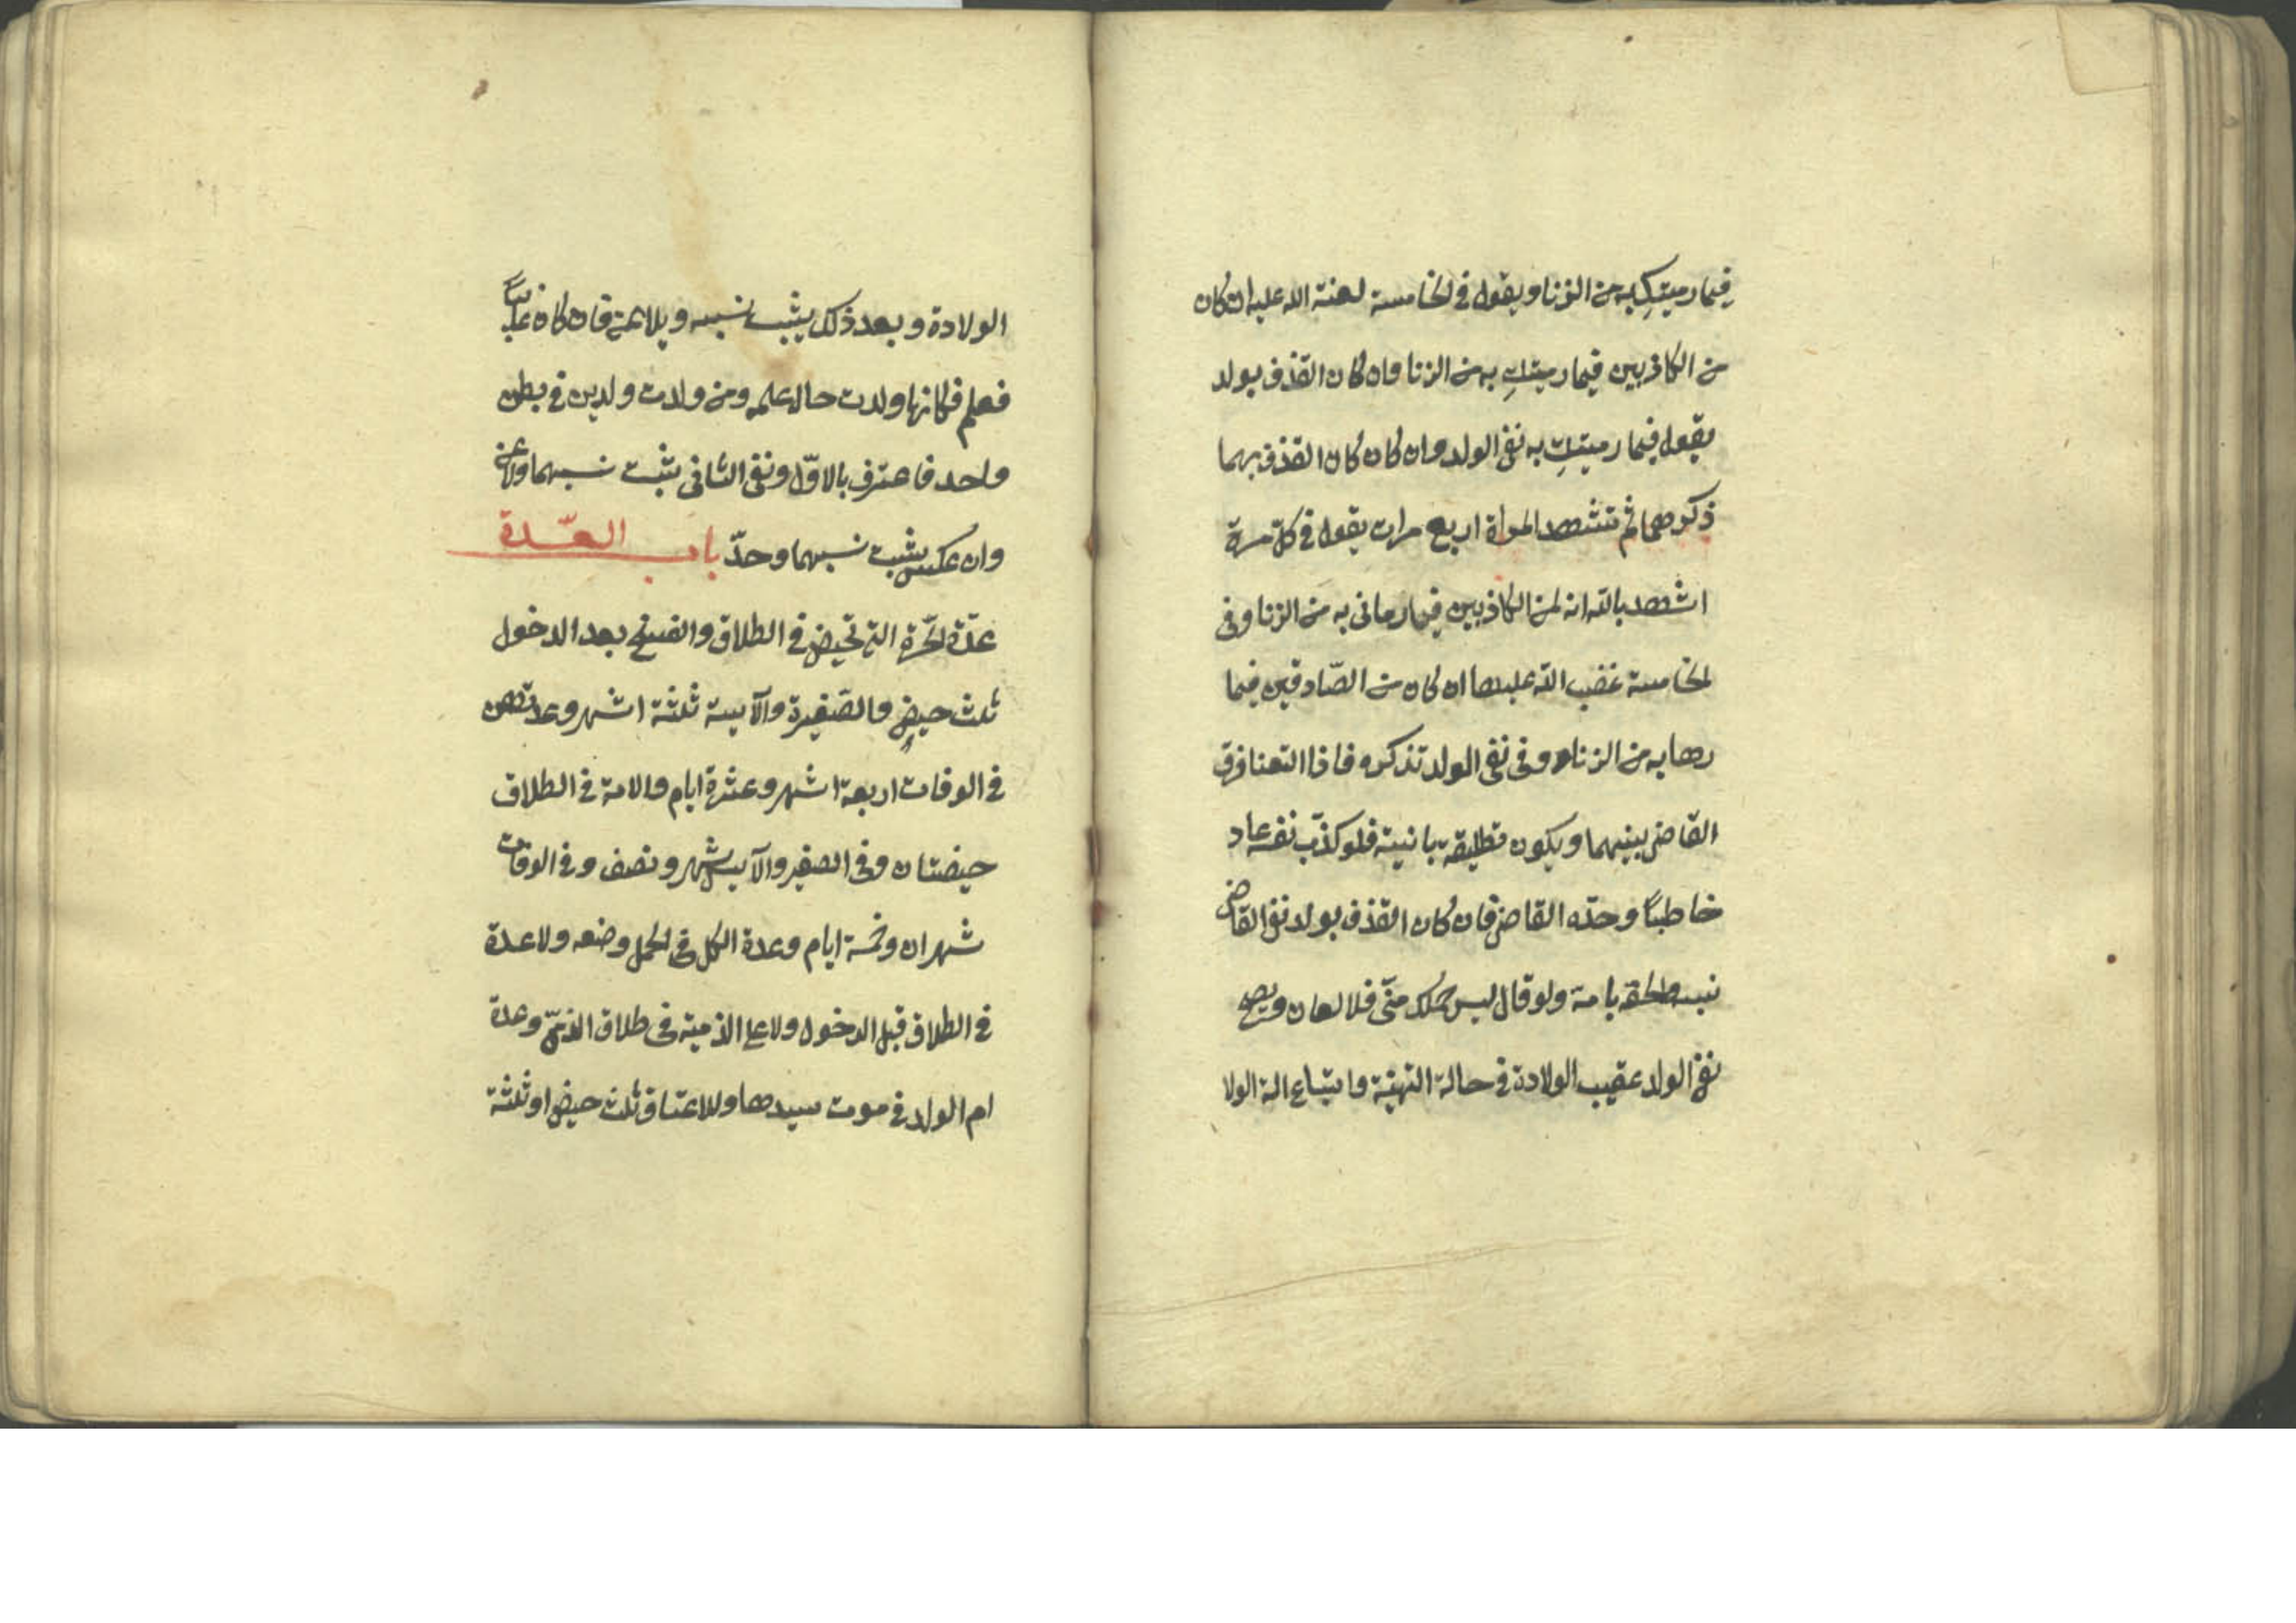 فيما رميتك به من الزنا ويقول في الخامسة لعنة الله عليه ان كان
من الكاذبين فيما رميتكِ به من الزنا وان كان القذف بولد
يقول فيما رميتكِ به نفي الولد وان كان كان القذف بهما
ذكرهما ثم تشهد المراة اربع مرات يقول في كلّ مرة
اشهد بالله انه لمن الكاذبين فيما رماني به من الزنا وفي
الخامسة غضب الله عليها ان كان من الصّادقين فيما
رهابه من الزنا وفي نفي الولد تذكره فاذا التعنا فرق
القاضي بينهما ويكون تطليقة باينة فلو كذّب نفسه عاد
خاطباً وحدّه القاضي فان كان القذف بولد نفي القاضي
نسبه والحقه بامه ولو قال ليس حملك منّي فلا لعان ويصح
نفي الولد عقيب الولادة في حالة التهنية وابتياع الة الولا
الولادة وبعد ذلك يثبت نسبه ويلاعن فان كان غايباً
فعلم فكانها ولدت حال علمه ومن ولدت ولدين في بطن
واحد فاعترف بالاوّل ونفي الثاني يثبت نسبهما ولاعن
وان عكس يثبت نسبهما وحدّ باب العدّة
عدّة الحرّة التي تحيض في الطلاق والفسخ بعد الدخول
ثلث حيض والصّغيرة والآيسة ثلثة اشهر وعدتهن
في الوفات اربعة اشهر وعشرة ايام والامة في الطلاق
حيضتان وفي الصغير والآيس شهر ونصف وفي الوفات
شهران وخمسة ايام وعدة الكل في الحمل وضعه ولا عدة
في الطلاق قبل الدخول ولا على الذمية في طلاق الذمّي وعدة
ام الولد في موت سيدها وللاعتاق ثلث حيض او ثلثة